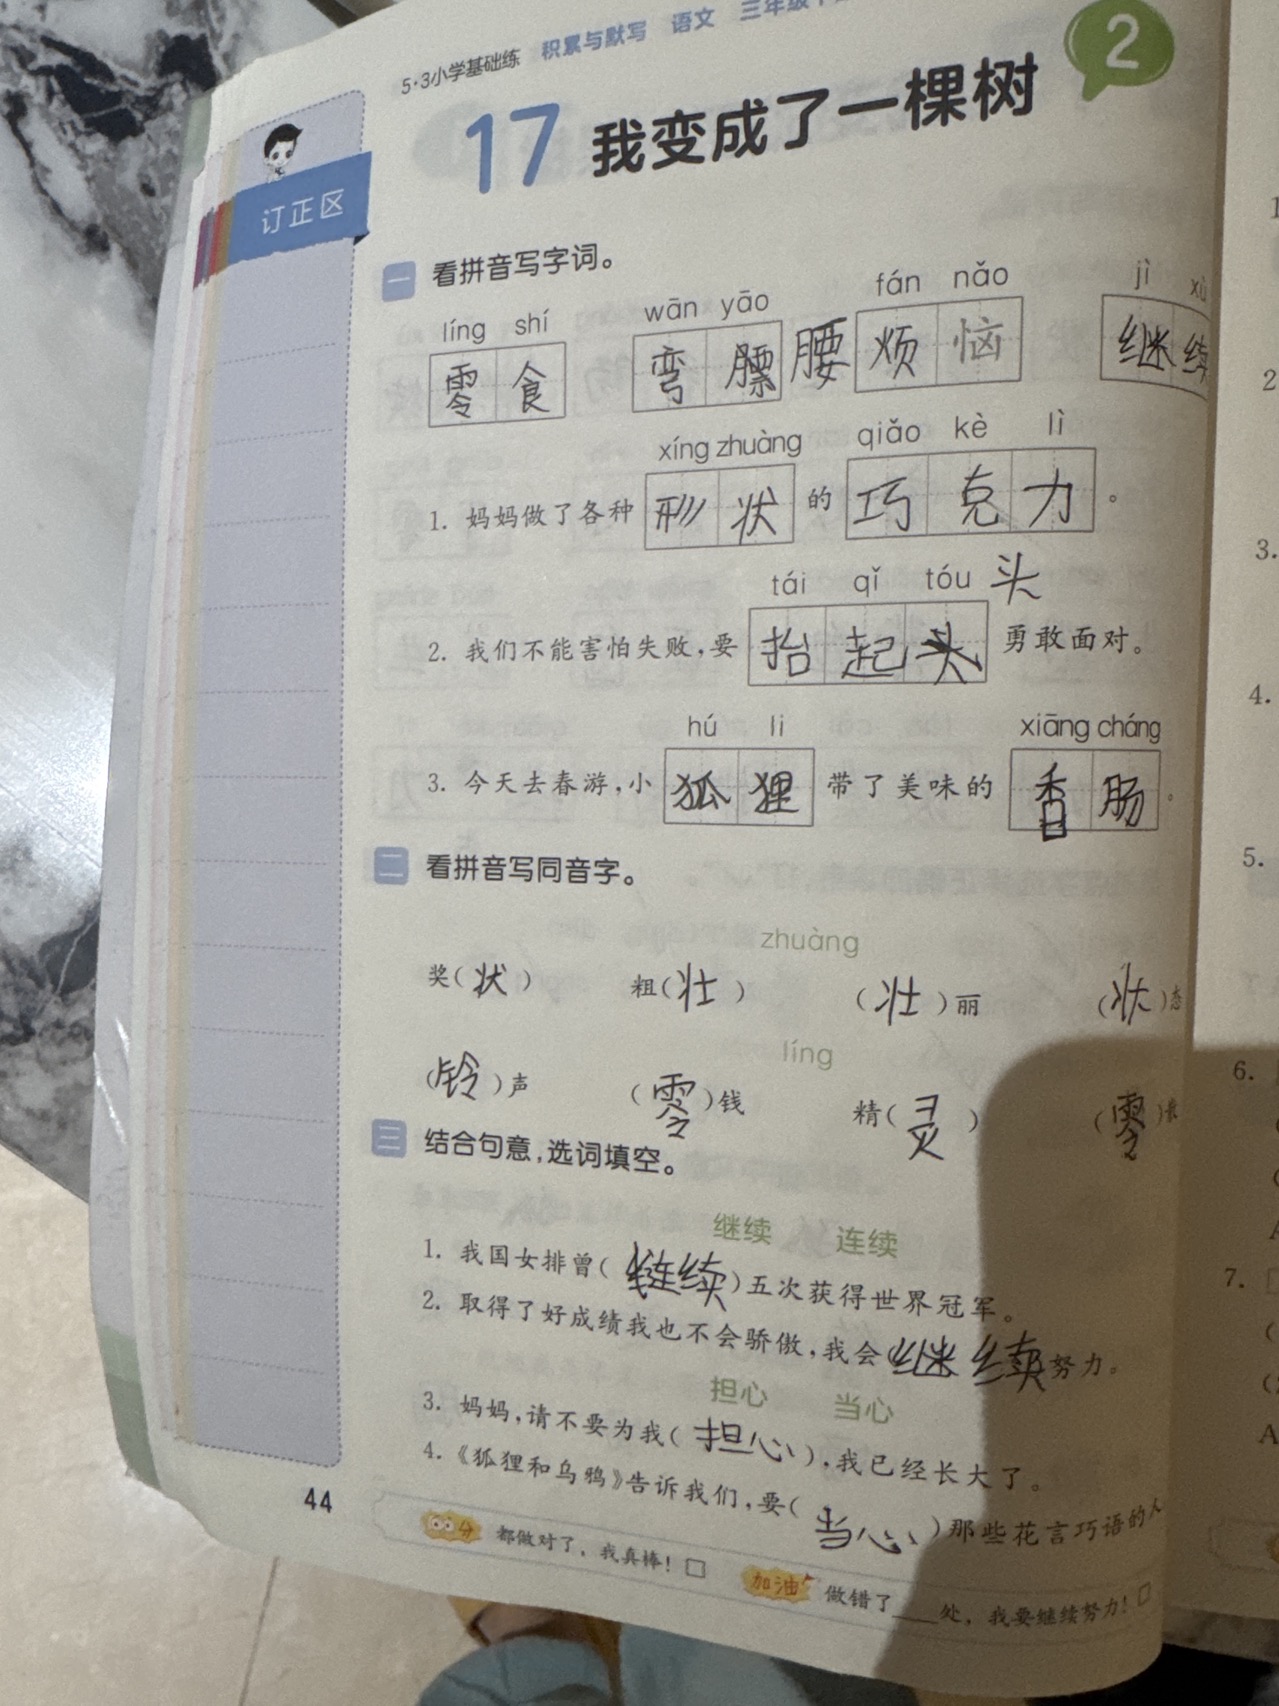 5·3小学基础练 积累与默写 语文 三年级下
2
17 我变成了一棵树
订正区
一 看拼音写字词。
líng shí wān yāo fán nǎo jì xù
零食 弯膘 腰 烦恼 继续
xíng zhuàng qiǎo kè lì
1. 妈妈做了各种形状的巧克力。
tái qǐ tóu 头
2. 我们不能害怕失败,要抬起头勇敢面对。
hú li xiāng cháng
3. 今天去春游,小狐狸带了美味的香肠。
二 看拼音写同音字。
zhuàng
奖(状) 粗(壮) (壮)丽 (状)态
líng
(铃)声 (零)钱 精(灵) (零)
三 结合句意,选词填空。
继续 连续
1. 我国女排曾(连续)五次获得世界冠军。
2. 取得了好成绩我也不会骄傲,我会(继续努力。
担心 当心
3. 妈妈,请不要为我(担心),我已经长大了。
4.《狐狸和乌鸦》告诉我们,要(当心)那些花言巧语的人
44
分 都做对了,我真棒!□ 加油 做错了___处,我要继续努力!□
1
2
3.
4.
5.
6.
7.
A